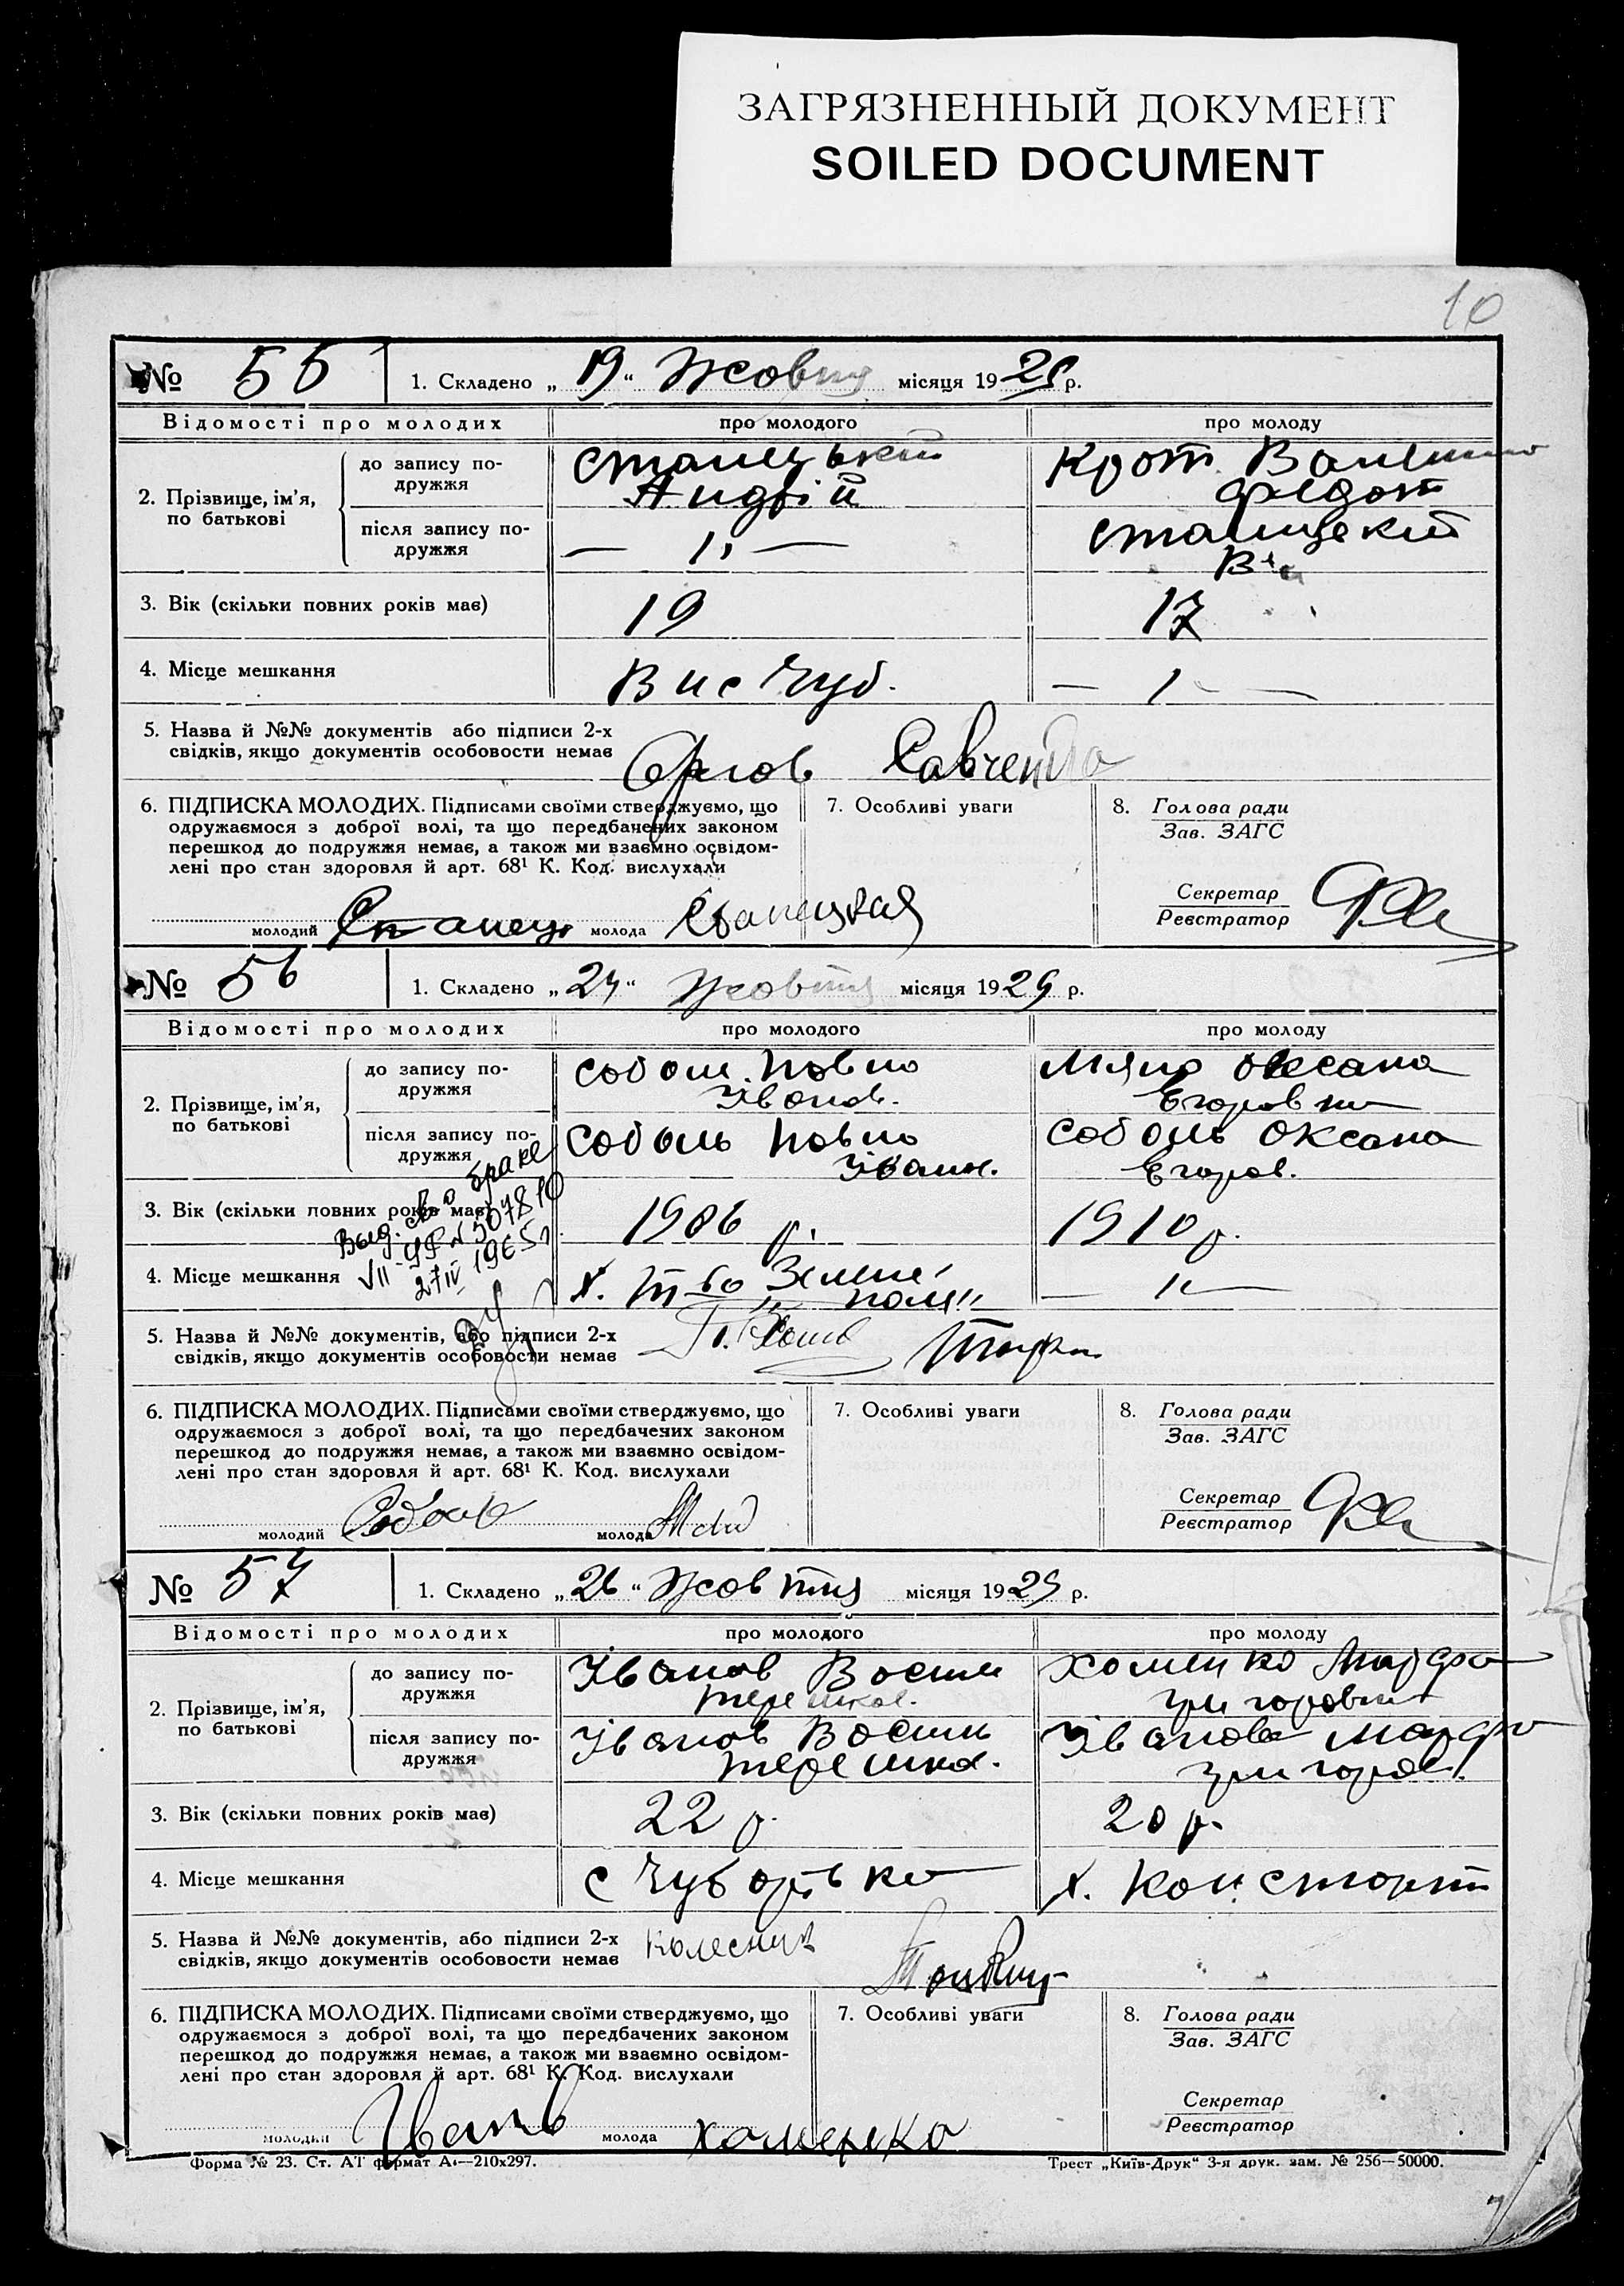 ЗАГРЯЗНЕННЫЙ ДОКУМЕНТ
SOILED DOCUMENT
10
№ 55 1. Складено „ 19 “ Жовтня місяця 19 29 р.
Відомості про молодих про молодого про молоду
2. Прізвище, ім'я, по батькові
до запису по-
дружжя
Станецький
Андрій
Крот
Федот
після запису по-
дружжя
— 1, —
В
3. Вік (скільки повних років має) 19 17
4. Місце мешкання Вис Чуб.
5. Назва й №№ документів або підписи 2-х
свідків, якщо документів особовости немає
Савченко
6. ПІДПИСКА МОЛОДИХ. Підписами своїми стверджуємо, що
одружаємося з доброї волі, та що передбачених законом
перешкод до подружжя немає, а також ми взаємно освідом-
лені про стан здоровля й арт. 68¹ К. Код. вислухали
молодий Станец молода Станецкая
7. Особливі уваги
8. Голова ради
Зав. ЗАГС
Секретар
Реєстратор
№ 56 1. Складено „ 24 “ Жовтня місяця 19 29 р.
Відомості про молодих про молодого про молоду
2. Прізвище, ім'я,
по батькові
до запису по-
дружжя
Соболь Павло
Іванов.
Оксана
Егоровна
після запису по-
дружжя
Соболь Павло
Іванов.
Соболь Оксана
Егоров.
3. Вік (скільки повних років має) 1906 р. 1910 р.
Выд. св. о браке
VII-УР № 507810
27 IV 1965 г.
4. Місце мешкання х. т-во Зелене
поле"
5. Назва й №№ документів, або підписи 2-х
свідків, якщо документів особовости немає
6. ПІДПИСКА МОЛОДИХ. Підписами своїми стверджуємо, що
одружаємося з доброї волі, та що передбачених законом
перешкод до подружжя немає, а також ми взаємно освідом-
лені про стан здоровля й арт. 68¹ К. Код. вислухали
молодий Соболь молода
7. Особливі уваги
8. Голова ради
Зав. ЗАГС
Секретар
Реєстратор
№ 57 1. Складено „ 26 “ Жовтня місяця 19 29 р.
Відомості про молодих про молодого про молоду
2. Прізвище, ім'я,
по батькові
до запису по-
дружжя
Іванов Васил
Терешков.
Хоменко Марфа
Григоровна
після запису по-
дружжя
Іванов Васил
Терешков.
Іванова Марфа
Григоров.
3. Вік (скільки повних років має) 22 р. 20 р.
4. Місце мешкання с Чубарівка х.
5. Назва й №№ документів, або підписи 2-х
свідків, якщо документів особовости немає
Колесник
6. ПІДПИСКА МОЛОДИХ. Підписами своїми стверджуємо, що
одружаємося з доброї волі, та що передбачених законом
перешкод до подружжя немає, а також ми взаємно освідом-
лені про стан здоровля й арт. 68¹ К. Код. вислухали
молодий Іванов молода Хоменко
7. Особливі уваги
8. Голова ради
Зав. ЗАГС
Секретар
Реєстратор
Форма № 23. Ст. АТ формат А₄—210x297. Трест „Київ-Друк“ 3-я друк. зам. № 256—50000.